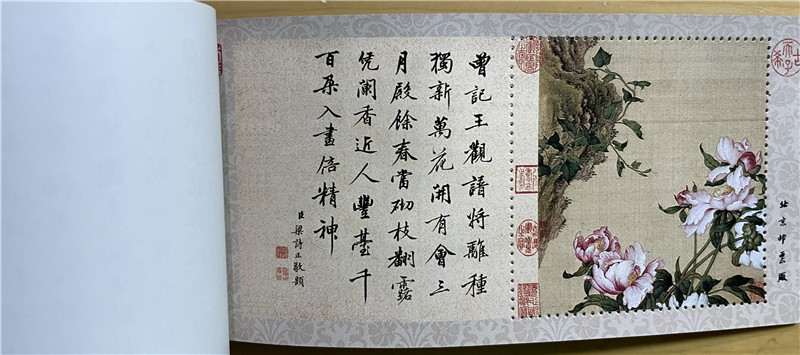 北京邮票厰
曾記王觀譜將離種
獨新萬花開有會三
月殿餘春當砌枝翻露
凭闌香近人豐臺千
百朵入畫倍精神
臣梁詩正敬題